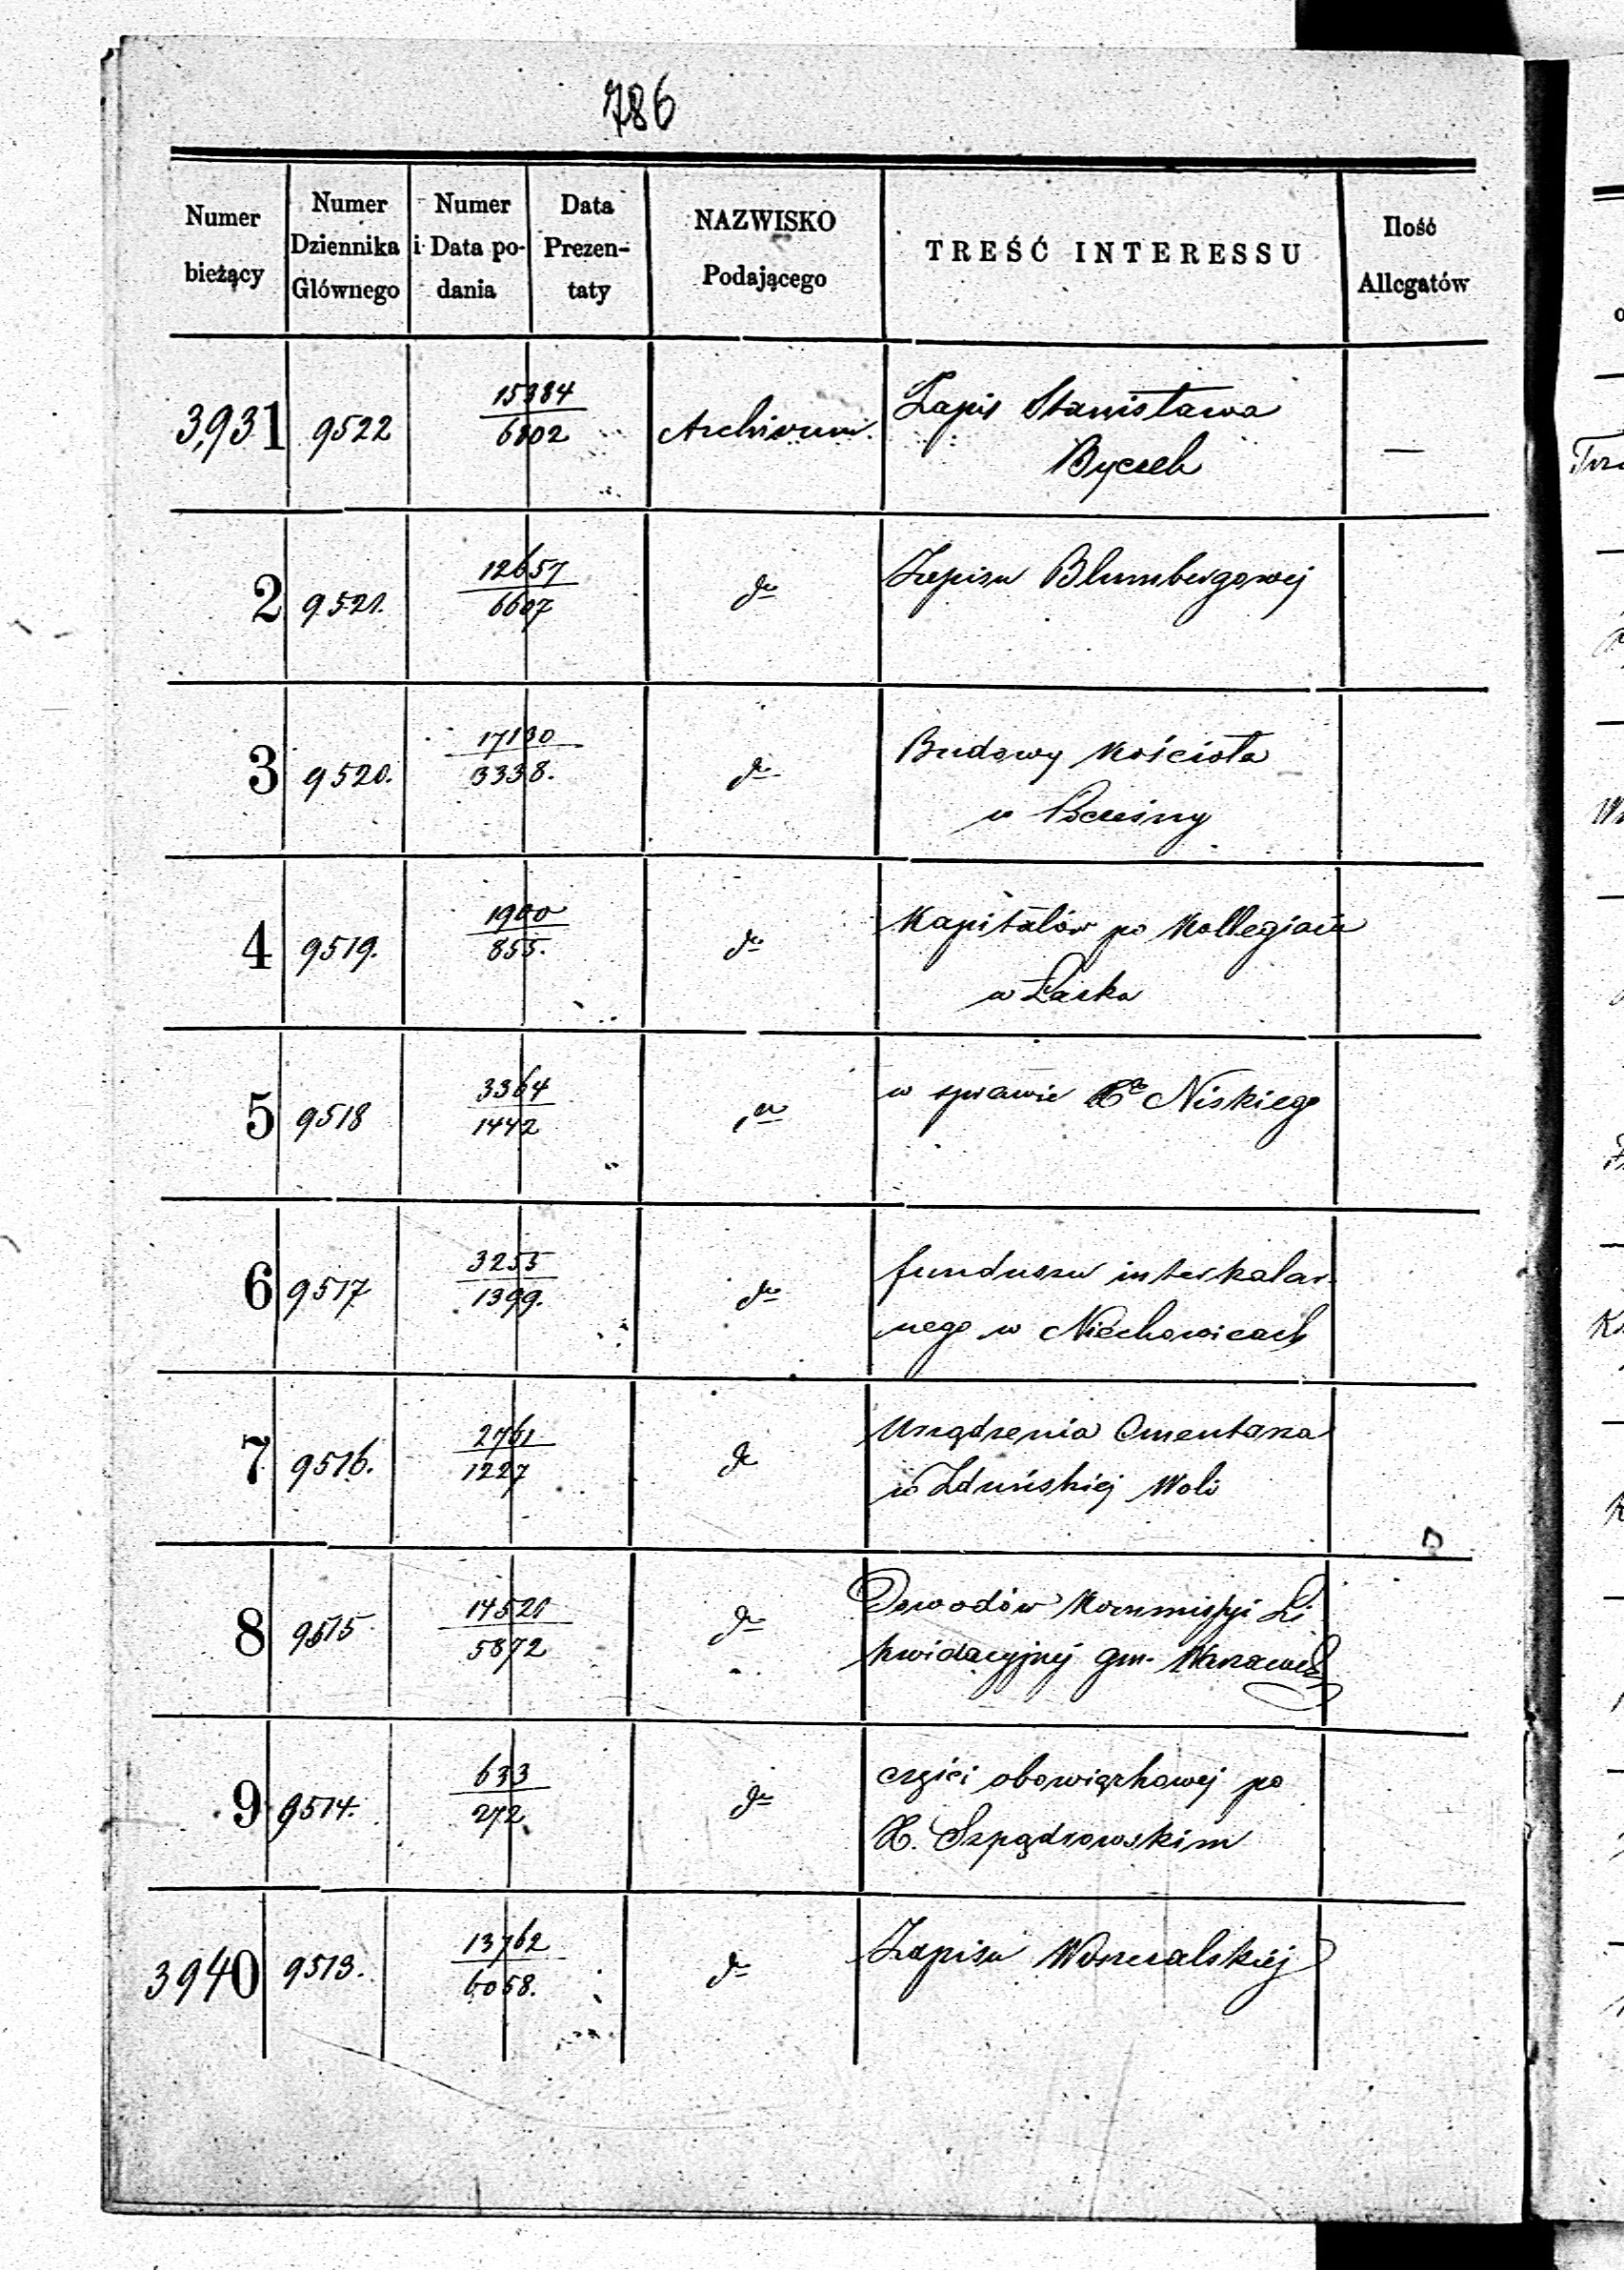 786
Numer bieżący | Numer Dziennika Głównego | Numer i Data podania | Data Prezentaty | NAZWISKO Podającego | TREŚĆ INTERESSU | Ilość Allegatów
3,931 | 9522 | 15384 / 6802 | Archivum. | Zapis Stanisława | —
2 | 9521. | 12657 / 6607 | do | Zapisu Blumbergowej
3 | 9520. | 17130 / 3338. | do | Budowy Kościoła
w
4 | 9519. | 1900 / 855. | do | Kapitałów po Kollegiacie
w Łasku
5 | 9518 | 3364 / 1442 | do | w sprawie Niskiego
6 | 9517 | 3255 / 1399. | do | funduszu interkalar-
nego w Niechowicach
7 | 9516. | 2761 / 1227 | do | Urządzenia Cmentarza
w Zduńskiéj Woli
8 | 9515 | 14521 / 5872 | do | Dowodów Kommissyi Li
kwidacyjnej gm.
9 | 9514. | 633 / 272. | do | części obowiązkowej po
X. Szpądrowskim
3940 | 9513. | 13762 / 6058. | do | Zapisu